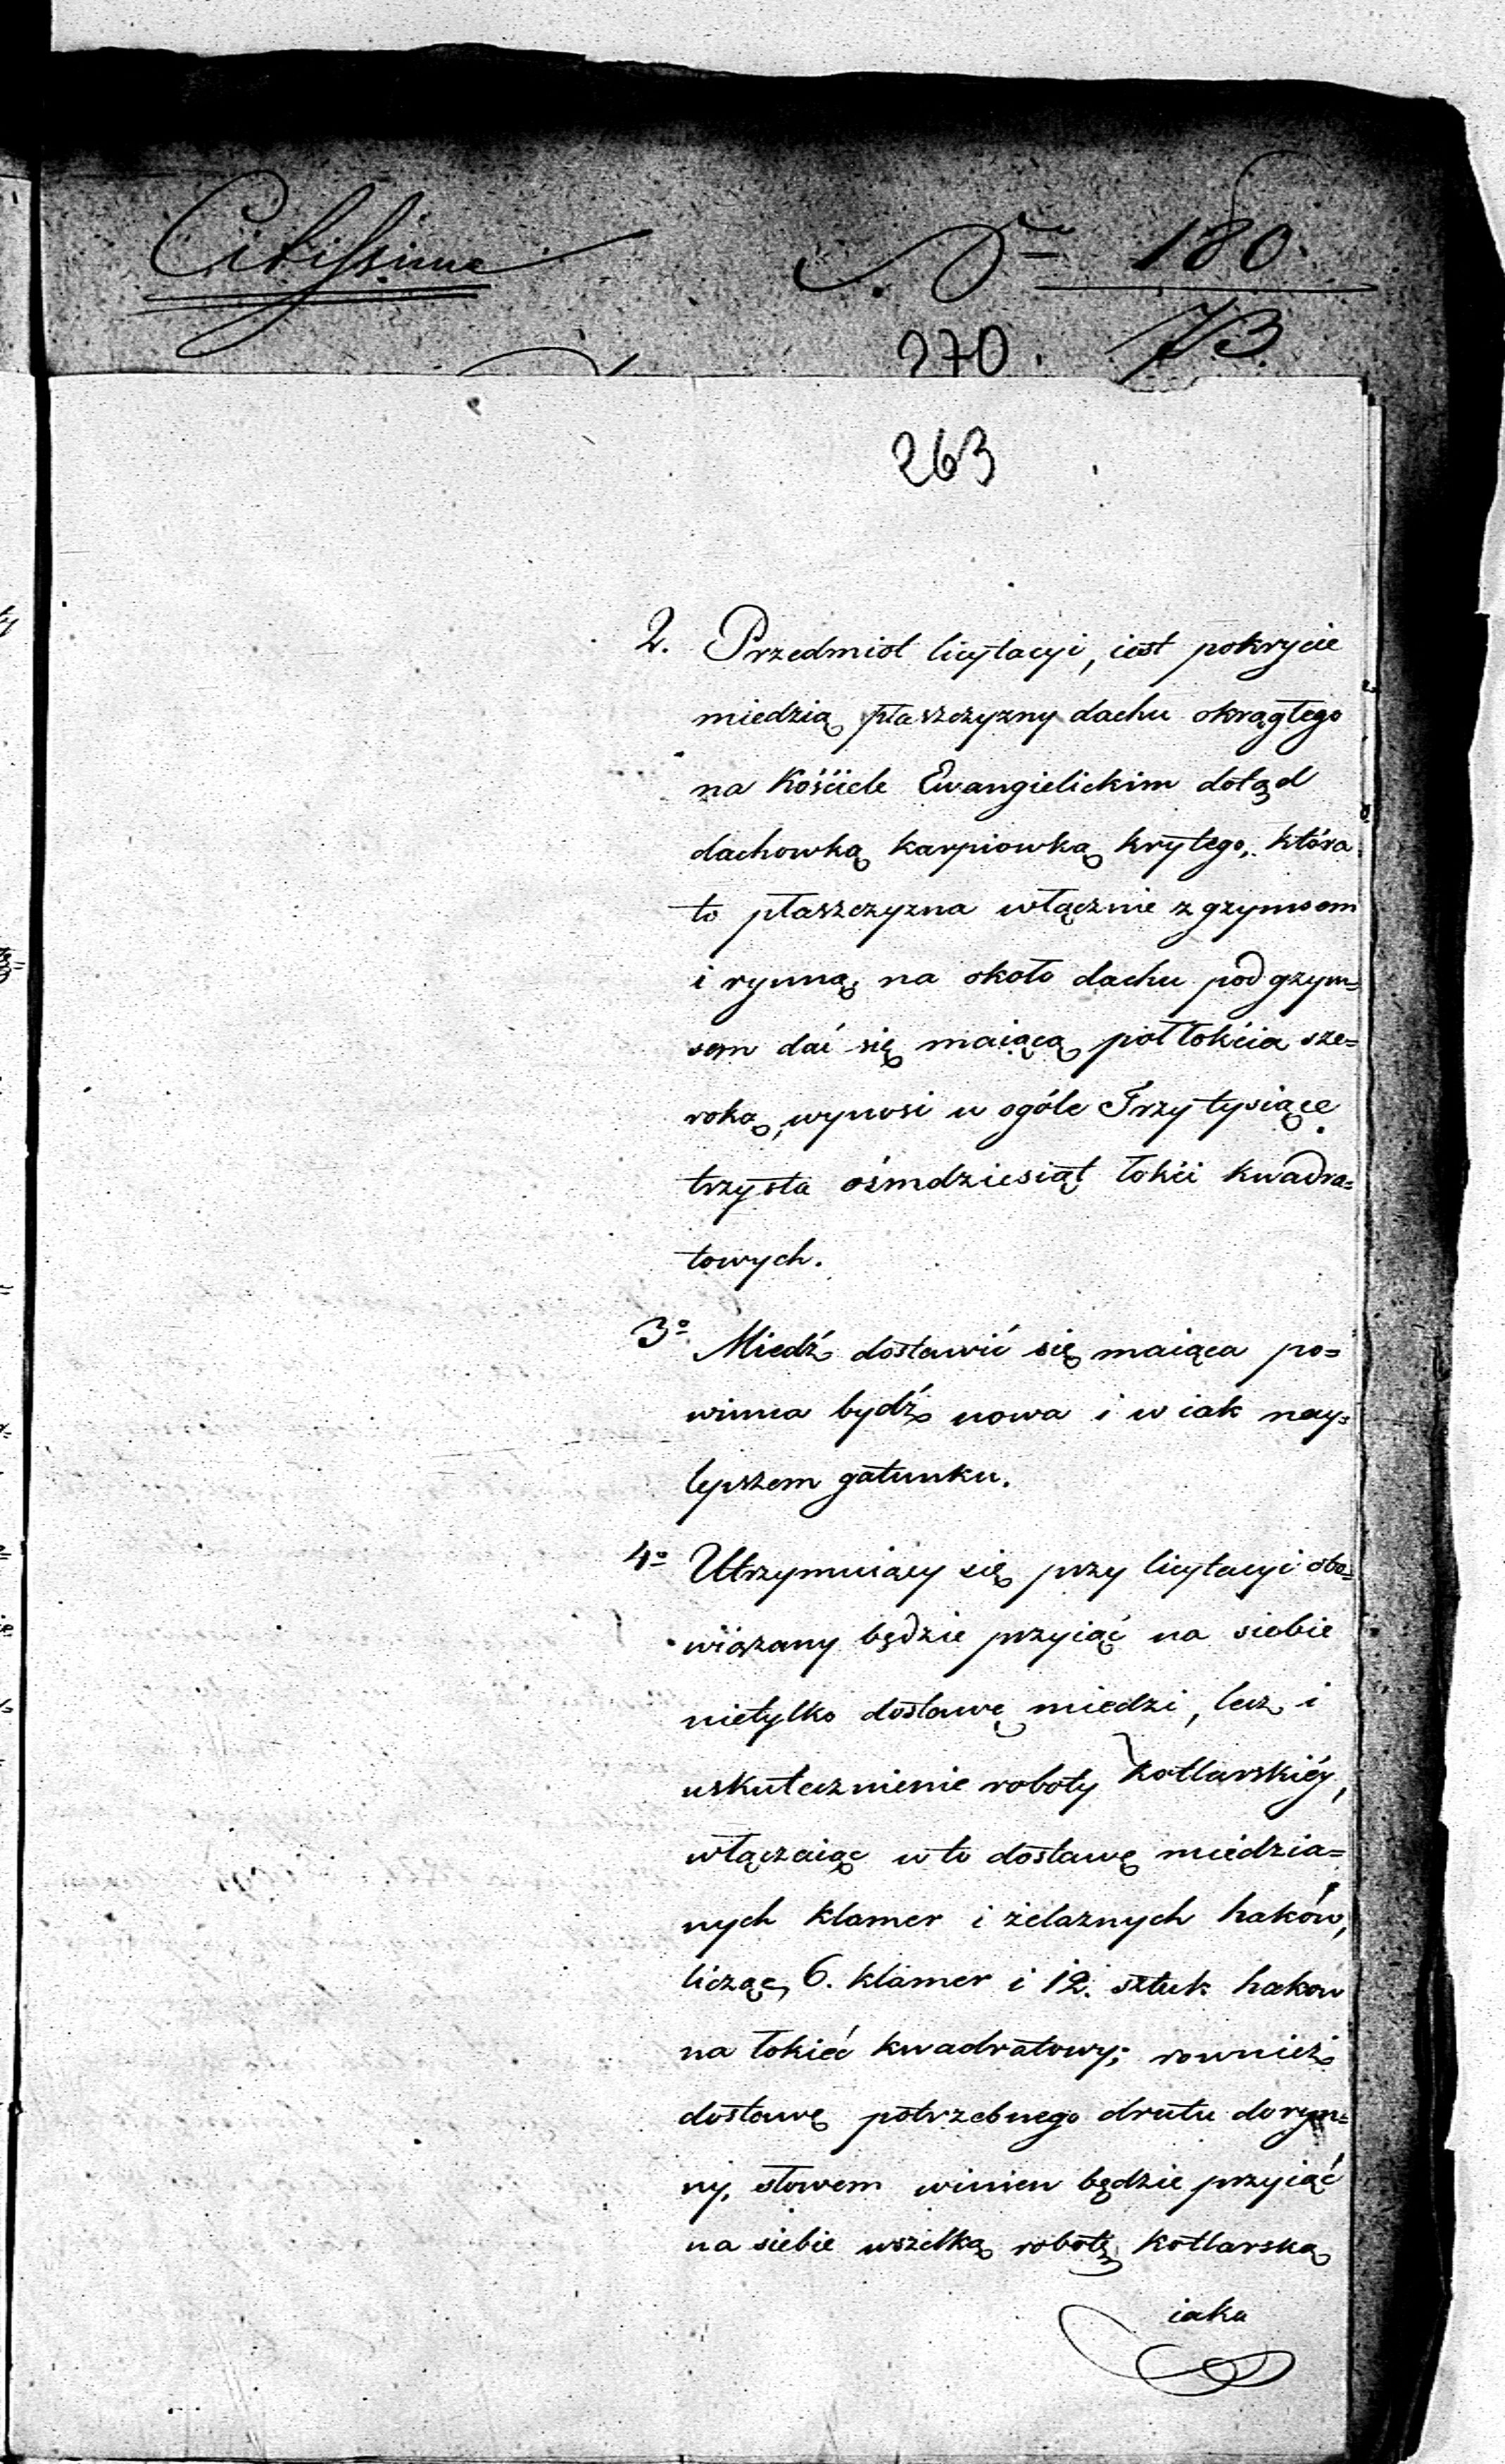 Citissime
180.
73
270.
263
2. Przedmiot licytacyi, iest pokrycie
miedzią płaszczyzny dachu okrągłego
na Kościele Ewangielickim dotąd
dachowką karpiowką krytego, która
to płaszczyzna włącznie z gzymsem
i rynną, na około dachu pod gzym=
sem dać się maiącą poł łokcia sze=
roką, wynosi w ogóle Trzy tysiące
trzysta ośmdziesiąt łokci kwadra=
towych.
3º Miedź dostawić się maiąca po=
winna bydź nowa i w iak nay=
lepszem gatunku.
4º Utrzymuiący się przy licytacyi obo=
wiązany będzie przyiąć na siebie
nietylko dostawę miedzi, lecz i
uskutecznienie roboty kotlarskiéy,
włączaiąc w to dostawę miedzia=
nych klamer i żelaznych haków,
licząc, 6. klamer i 12. sztuk hakow
na łokieć kwadratowy; rownież
dostawę potrzebnego drutu do ryn=
ny, słowem winien będzie przyiąć
na siebie wszelką robotę kotlarską
iaka